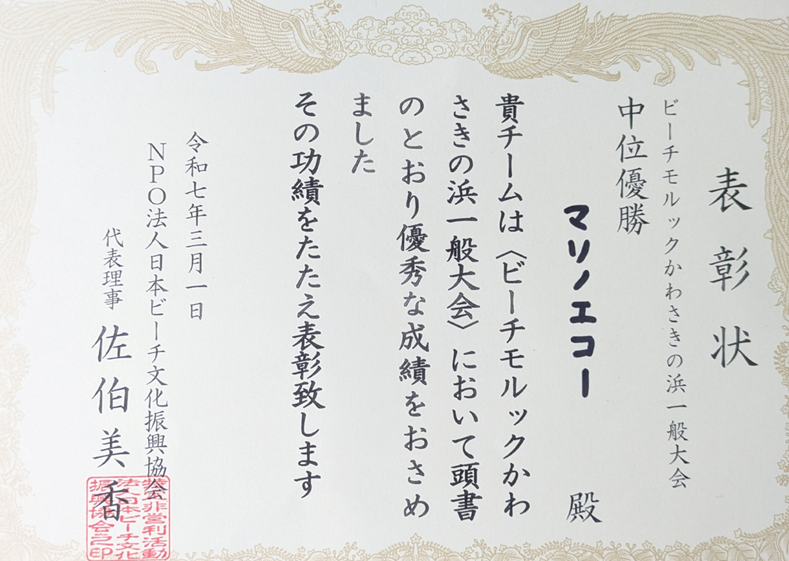 表彰状
ビーチモルックかわさきの浜一般大会
中位優勝
マリノエコー 殿
貴チームは〈ビーチモルックかわ
さきの浜一般大会〉において頭書
のとおり優秀な成績をおさめ
ました
その功績をたたえ表彰致します
令和七年三月一日
NPO法人日本ビーチ文化振興協会
代表理事 佐伯美香
特定非営利活動
法人日本ビーチ文化
振興協会之印